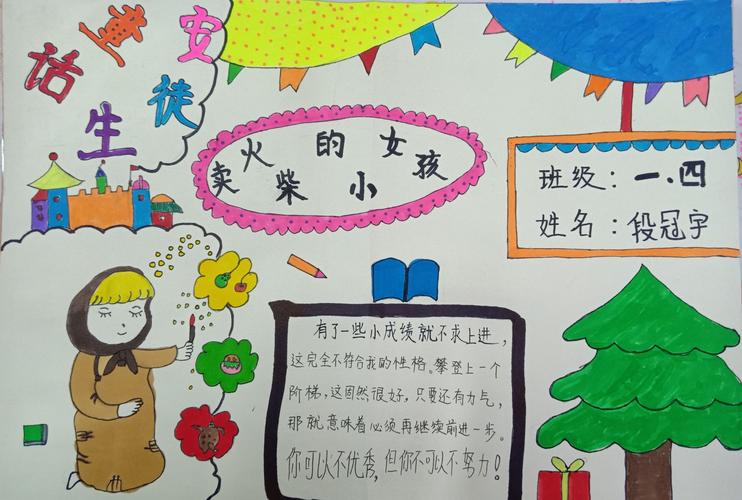 安徒生童话
卖火柴的小女孩
班级：一.四
姓名：段冠宇
有了一些小成绩就不求上进，
这完全不符合我的性格。攀登上一个
阶梯，这固然很好，只要还有力气，
那就意味着必须再继续前进一步。
你可以不优秀，但你不可以不努力！